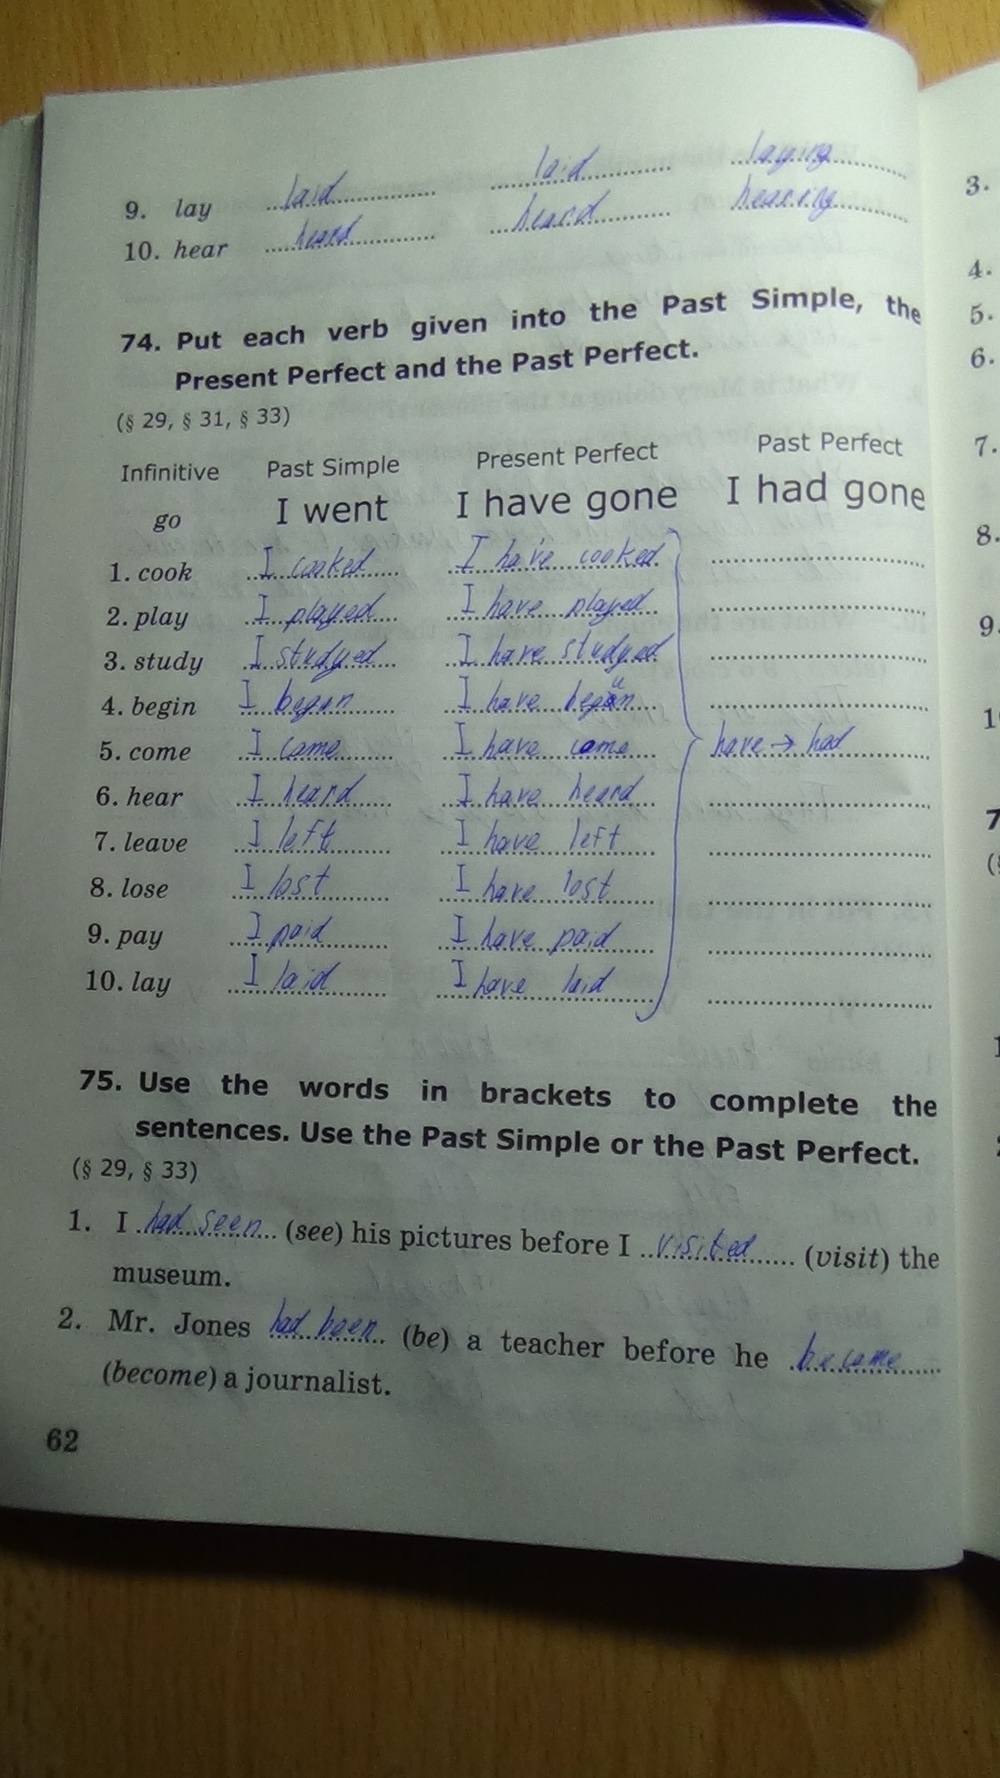 9. lay laid laid laying
10. hear heard heard hearing
74. Put each verb given into the Past Simple, the
Present Perfect and the Past Perfect.
(§ 29, § 31, § 33)
Infinitive Past Simple Present Perfect Past Perfect
go I went I have gone I had gone
1. cook I cooked I have cooked
2. play I played I have played
3. study I studyed I have studyed
4. begin I began I have begun
5. come I came I have come have → had
6. hear I heard I have heard
7. leave I left I have left
8. lose I lost I have lost
9. pay I paid I have paid
10. lay I laid I have laid
75. Use the words in brackets to complete the
sentences. Use the Past Simple or the Past Perfect.
(§ 29, § 33)
1. I had seen (see) his pictures before I visited (visit) the
museum.
2. Mr. Jones had been (be) a teacher before he became
(become) a journalist.
62
3.
4.
5.
6.
7.
8.
9.
1
7